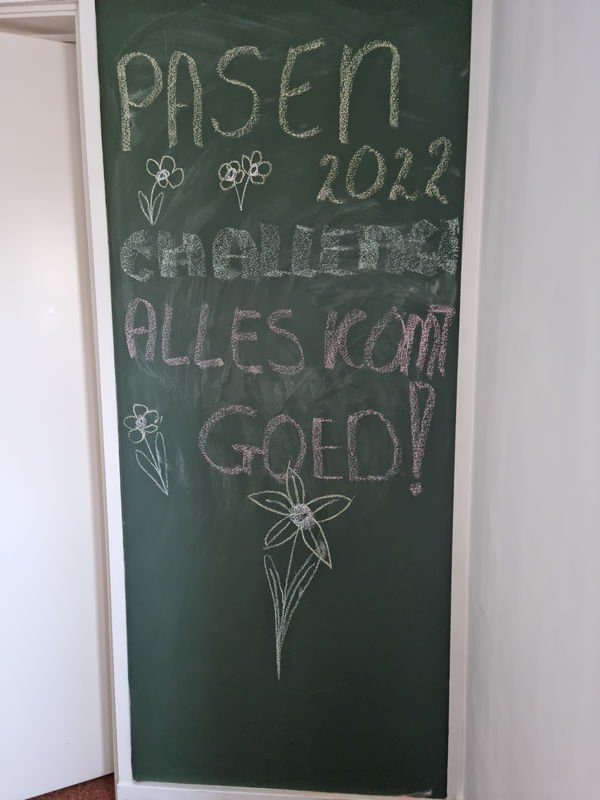 PASEN
2022
CHALLENGE
ALLES KOMT
GOED!